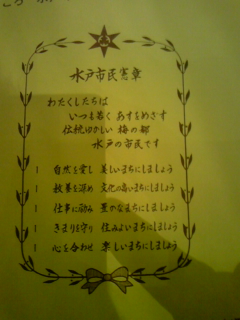 水戸市民憲章
わたくしたちは
いつも若く あすをめざす
伝統ゆかしい 梅の都
水戸の市民です
1 自然を愛し 美しいまちにしましょう
1 教養を深め 文化の高いまちにしましょう
1 仕事に励み 豊かなまちにしましょう
1 きまりを守り 住みよいまちにしましょう
1 心を合わせ 楽しいまちにしましょう